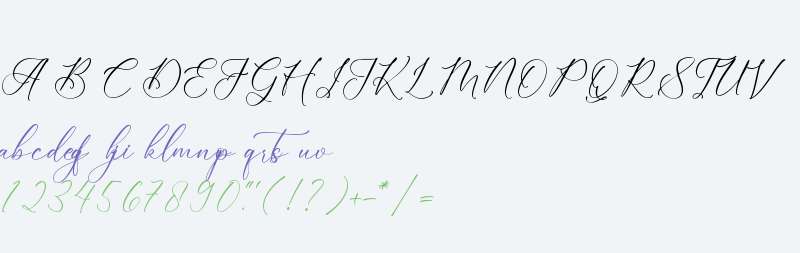 A B C D E F G H I J K L M N O P Q R S T U V
abcdefg hi j klmnop qrst uv
1234567890."'(!?)+-*/=